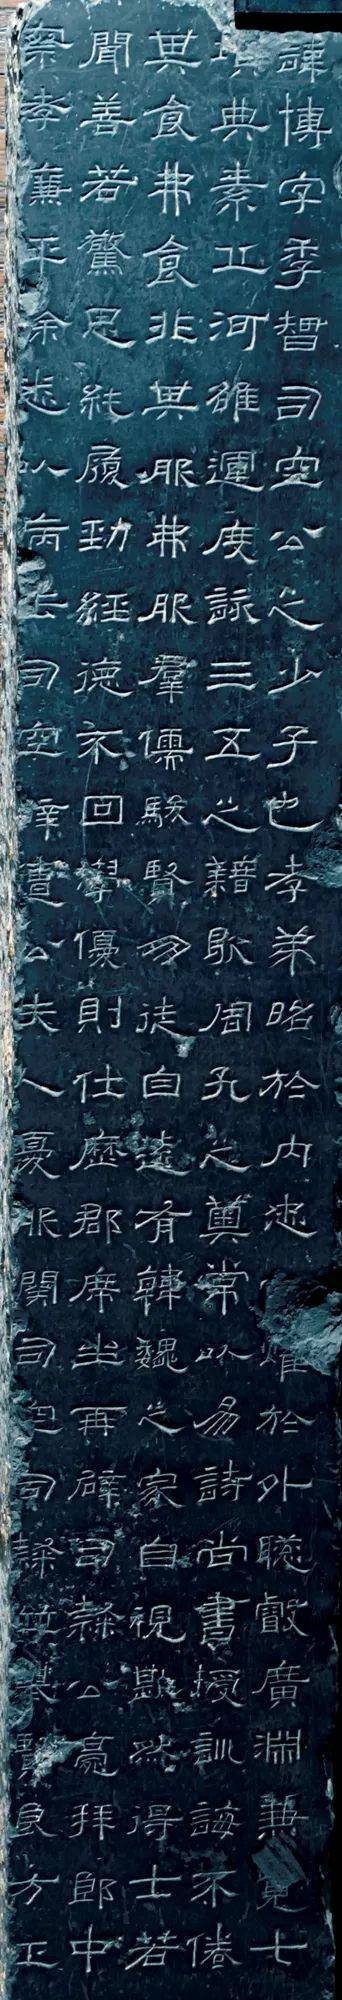 諱博字季智司空公之少子也孝弟昭於内忠耀於外聰叡廣淵兼覽七
墳典素丘河雒運度詠三五之籍歇周孔之奠常以易詩尚書授訓誨不倦
其食弗食非其服弗服羣儒駿賢朋徒自遠有韓魏之家自視歉然得士若
聞善若驚思純履勁經德不回學優則仕歷郡席坐再辟司隸公亮拜郎中
察孝廉平除悉以病去司空遭公夫人憂服闋司空司隸並舉賢良方正